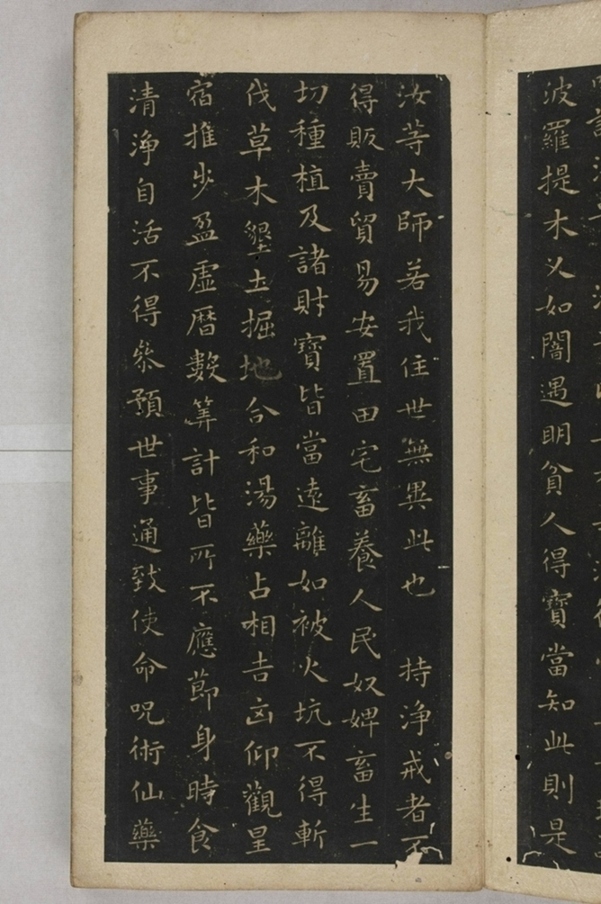 波羅提木叉如闇遇明貧人得寶當知此則是
汝等大師若我住世無異此也 持淨戒者不
得販賣貿易安置田宅畜養人民奴婢畜生一
切種植及諸財寶皆當遠離如被火坑不得斬
伐草木墾土掘地合和湯藥占相吉凶仰觀星
宿推步盈虛暦數筭計皆所不應節身時食
清淨自活不得參預世事通致使命呪術仙藥